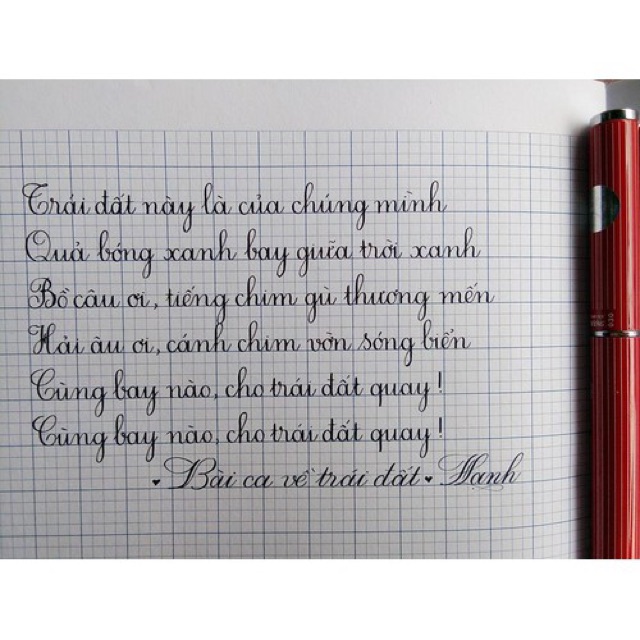 Trái đất này là của chúng mình
Quả bóng xanh bay giữa trời xanh
Bồ câu ơi, tiếng chim gù thương mến
Hải âu ơi, cánh chim vờn sóng biển
Cùng bay nào, cho trái đất quay!
Cùng bay nào, cho trái đất quay!
♥ Bài ca về trái đất ♥ Hạnh